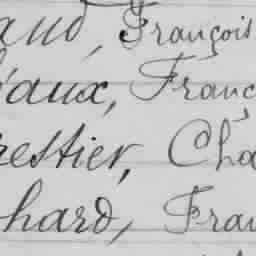 aud, François
eaux, Franç
restier, Cha
hard, Fran